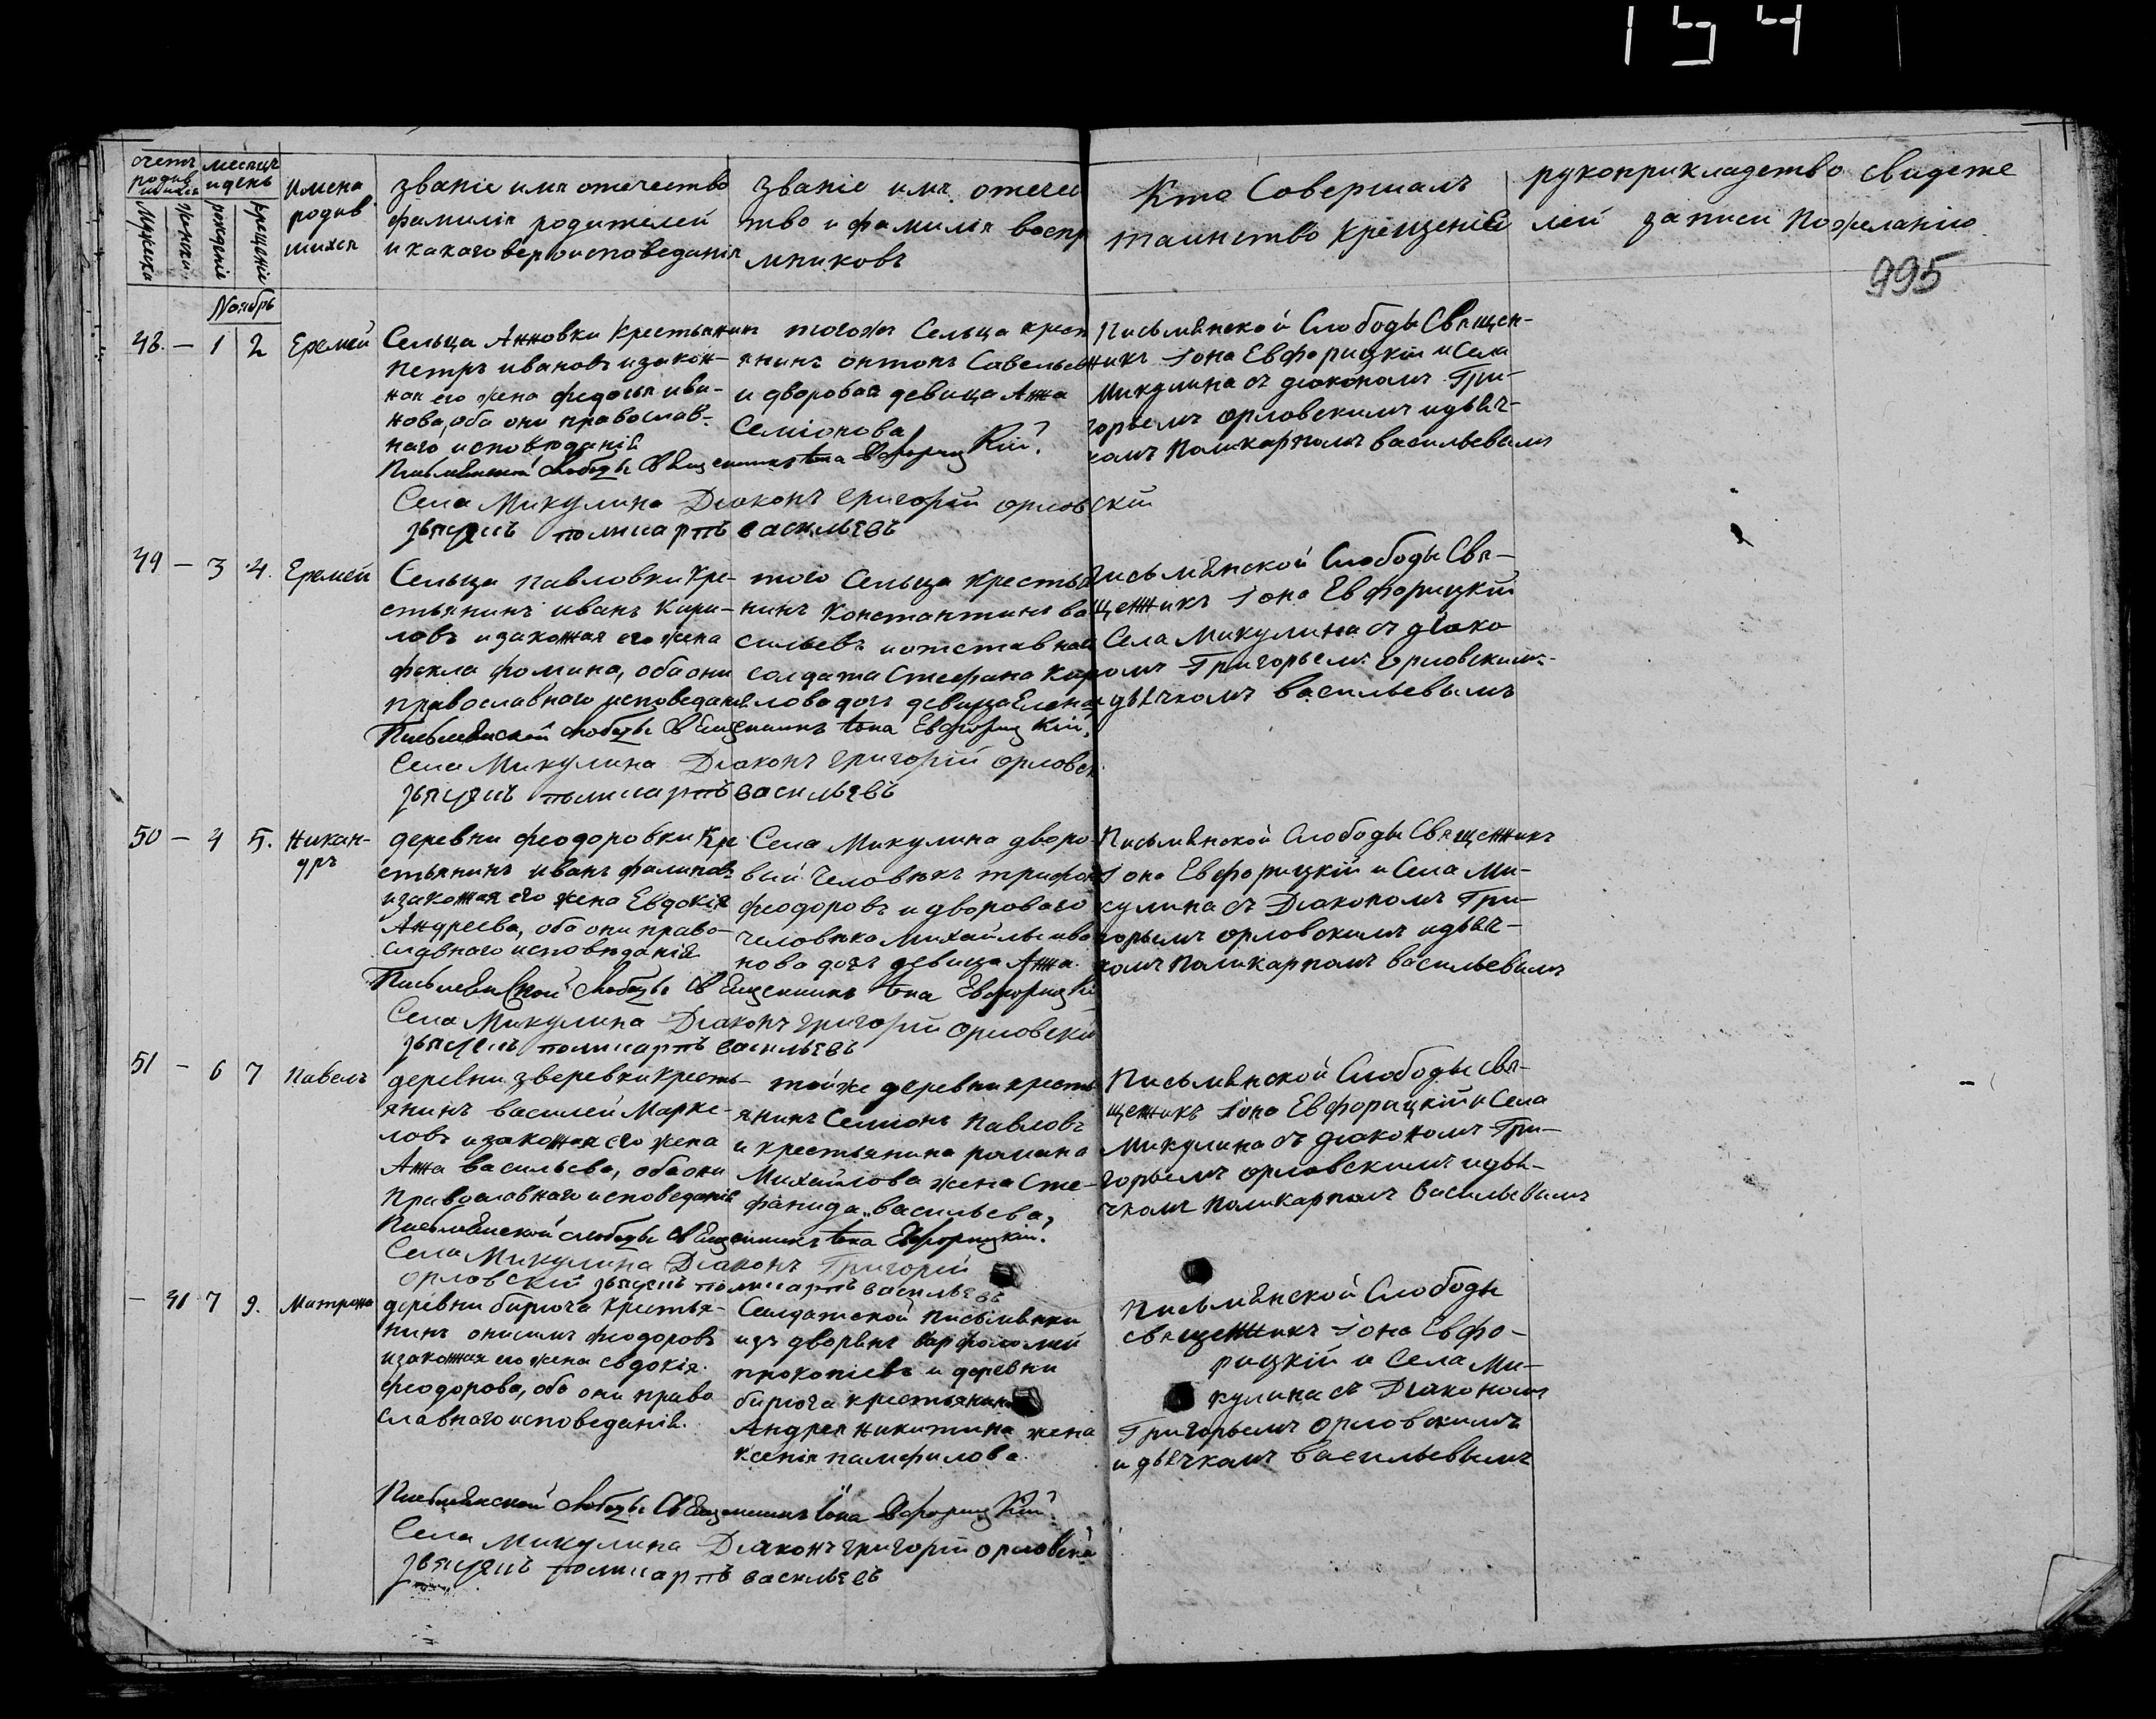 154
995
счетъ родившихся
месяцъ и день
Мужеска
женска
рожденiе
крещенiе
Имена родившихся
званiе имя отечество
фамилiя родителей
и какаго вероисповеданiя
званiе имя отечес
тво и фамилiя воспр
мниковъ
Кто Совершалъ
таинство крещенiе
рукоприкладство свидете
лей записи по желанiю
Ноябрь
48. — 1 2 Еремей
Сельца Анновки крестьянинъ
петръ ивановъ и закон-
ная его жена федосья ива-
нова, оба они православ-
наго исповеданiя
тогожъ Сельца крест
янинъ онтонъ Савельев
и дворовая девица Анна
Семiонова
Письмянской Слободы Священ-
никъ Iона Евфорицкiй и Села
Микулина съ дiакономъ Гри-
горьемъ орловскимъ и дьяч-
комъ Поликарпомъ васильевымъ
Письмянской слободы Священникъ Iона Евфорицкiй
Села Микулина Дiаконъ григорiй орловскiй
дьячекъ поликарпъ васильевъ
49 — 3 4. Еремей
Сельца павловки кре-
стьянинъ иванъ Кири-
ловъ и законная его жена
фекла фомина, оба они
православнаго исповеданiя
того Сельца кресть
нинъ Константинъ ва
сильевъ и отставнаго
солдата Стефана Кир
лова дочь девица Елена
Письмянской Слободы Свя-
щенникъ Iона Евфорицкiй
Села Микулина съ дiако
номъ Григорьемъ Орловскимъ
и дьячкомъ васильевымъ
Письмянской слободы Священникъ Iона Евфорицкiй
Села Микулина Дiаконъ григорiй орловск
дьячекъ поликарпъ васильевъ
50 — 4 5. Никан-
дръ
деревни феодоровки кре
стьянинъ иванъ
и законная его жена Евдокiя
Андреева, оба они право-
славнаго исповеданiя
Села Микулина дворо
вый человекъ трифон
феодоровъ и двороваго
человека Михайлы ива
нова дочь девица Анна
Письмянской Слободы Священникъ
Iона Евфорицкiй и Села Ми-
кулина съ Дiакономъ Гри-
горьемъ орловскимъ и дьяч-
комъ Поликарпомъ васильевымъ
Письмянской слободы Священникъ Iона Евфорицкi
Села Микулина Дiаконъ григорiй орловскiй
дьячекъ поликарпъ васильевъ
51 — 6 7 Павелъ
деревни зверевки кресть-
янинъ василей Марке-
ловъ и законная его жена
Анна васильева, оба они
Православнаго исповеданiя
той же деревни кресть
янинъ Семионъ Павловъ
и крестьянина романа
Михайлова жена Сте-
фанида васильева
Письмянской Слободы Свя-
щенникъ Iона Евфорицкiй и Села
Микулина съ дiакономъ Гри-
горьемъ орловскимъ и дья-
чкомъ Поликарпомъ васильевымъ
Письмянской слободы Священникъ Iона Евфорицкiй
Села Микулина Дiаконъ Григорiй
орловскiй дьячекъ поликарпъ васильевъ
— 41 7 9. Матрона
деревни бирюча крестья-
нинъ онисимъ феодоровъ
и законная его жена евдокiя
феодорова, оба они право
славнаго исповеданiя.
Солдатской Письмянки
изъ дворянъ варфоломей
прокопiевъ и деревни
бирюча крестьянина
Андрея никитина жена
ксенiя памфилова
Письмянской Слободы
священникъ Iона Евфо-
рицкiй и Села Ми-
кулина съ Дiакономъ
Григорьемъ орловскимъ
и дьячкомъ васильевымъ
Письмянской слободы Священникъ Iона Евфорицкiй
Села Микулина Дiаконъ григорiй орловскiй
дьячекъ поликарпъ васильевъ